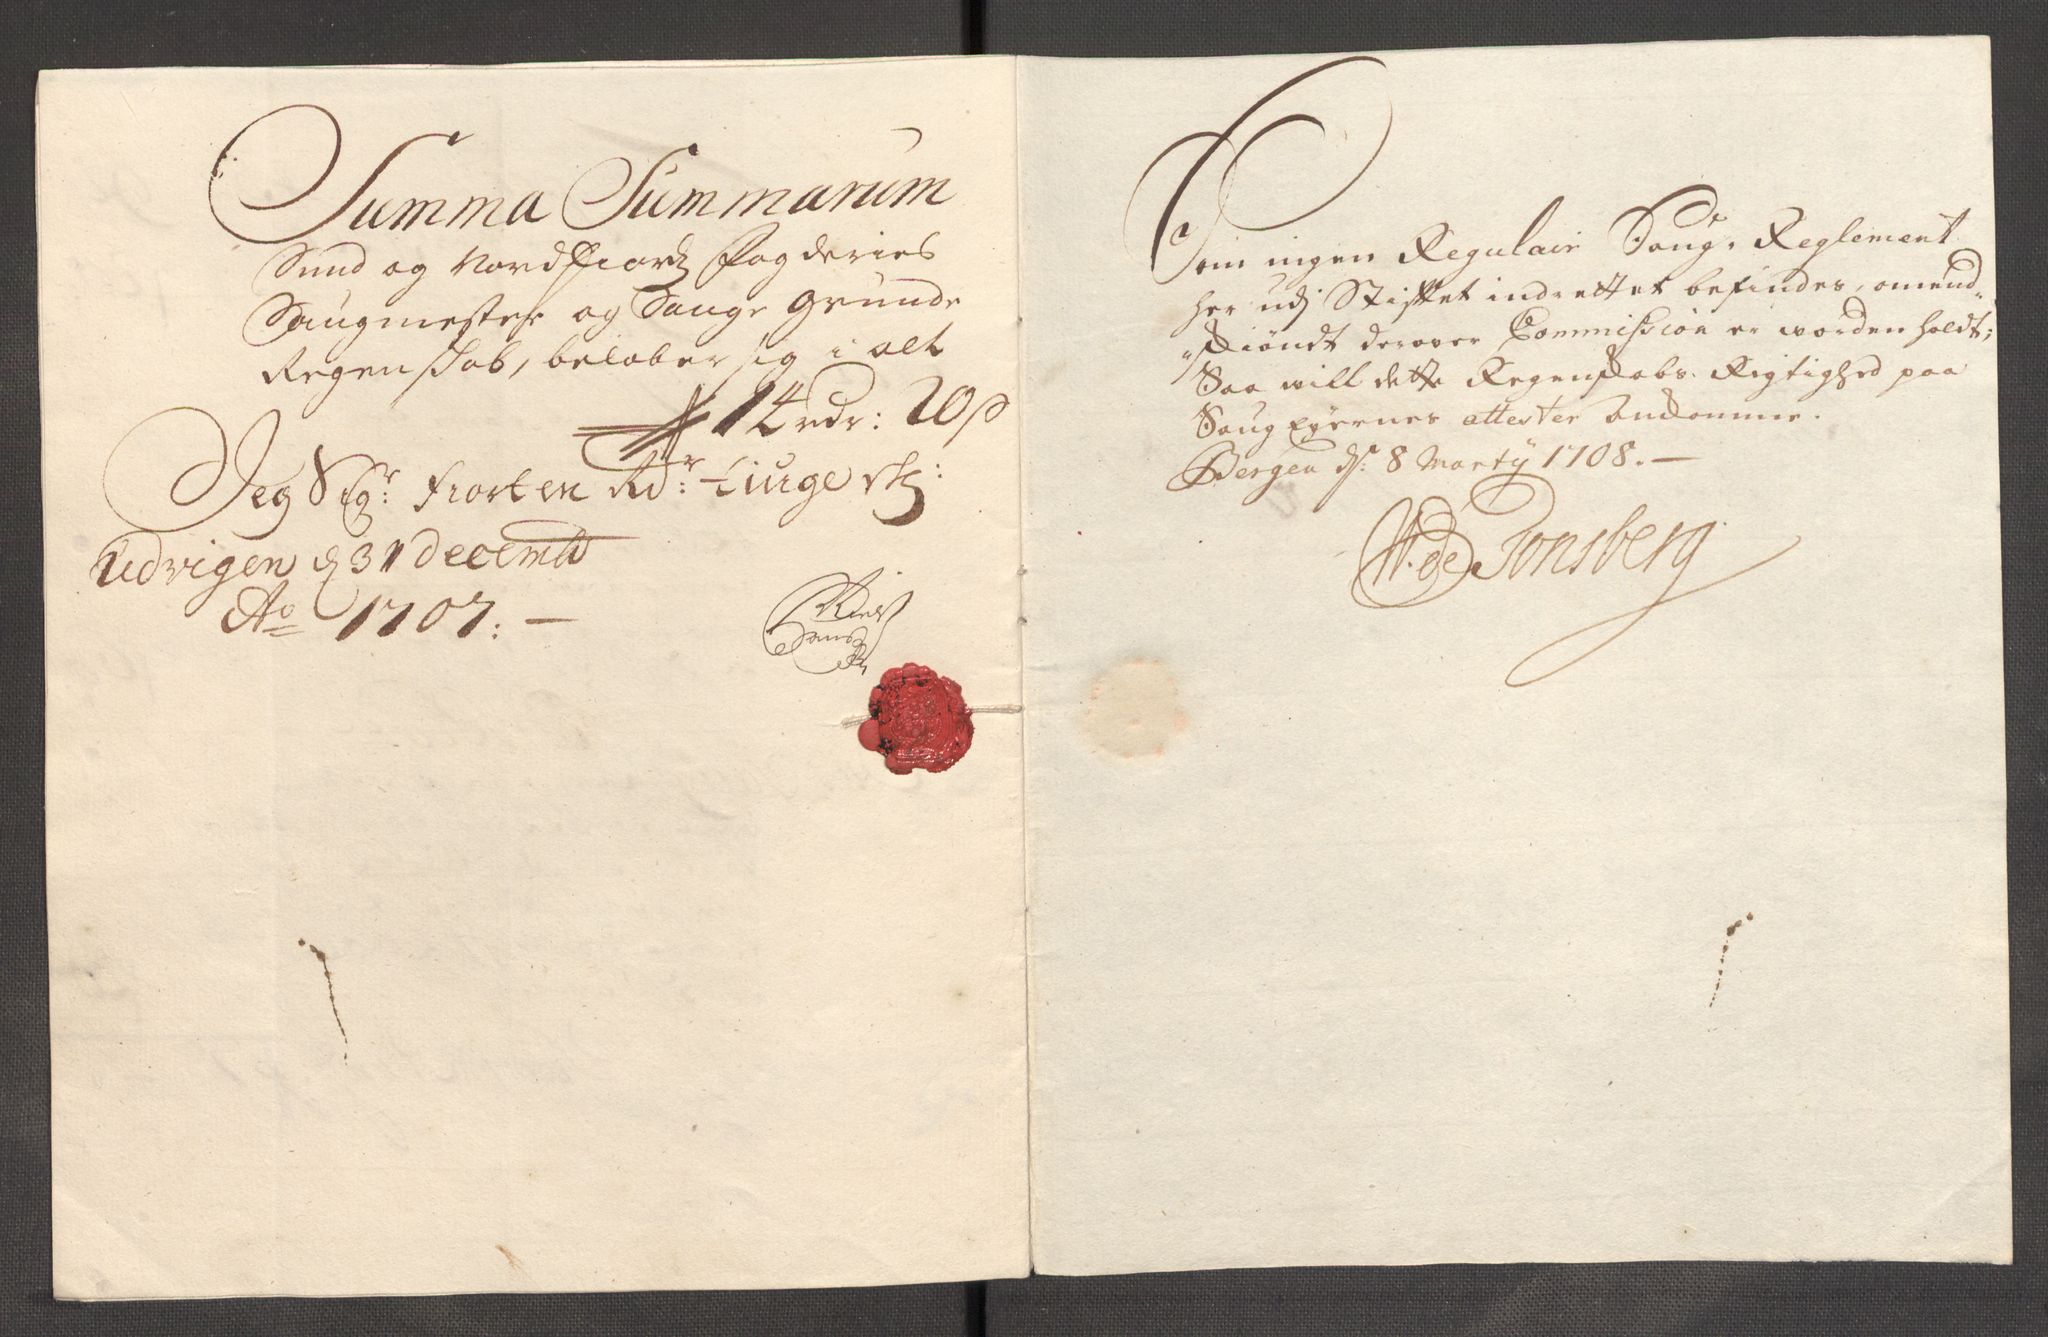 Summa Summarum
Sund og Nordfiords Fogderies
Saugmester og Sauge Grunde
Regenskab, beløber sig i alt
14 rdr: 20 s
Jeg Sigr: fiorten Rdr: tiuge sk:
Udvigen d 31 Decemb
Ao 1707: —
Niels
Hans
Som ingen Regulair Saug-Reglement
her udj Stiftet indrettet befindes, omend-
skiöndt derover Commission er worden holdt;
Saa will dette Regenskabs Rigtighed paa
Saug Eyernes attester ankomme.
Bergen ds: 8 Marty 1708. —
W. de Tonsberg